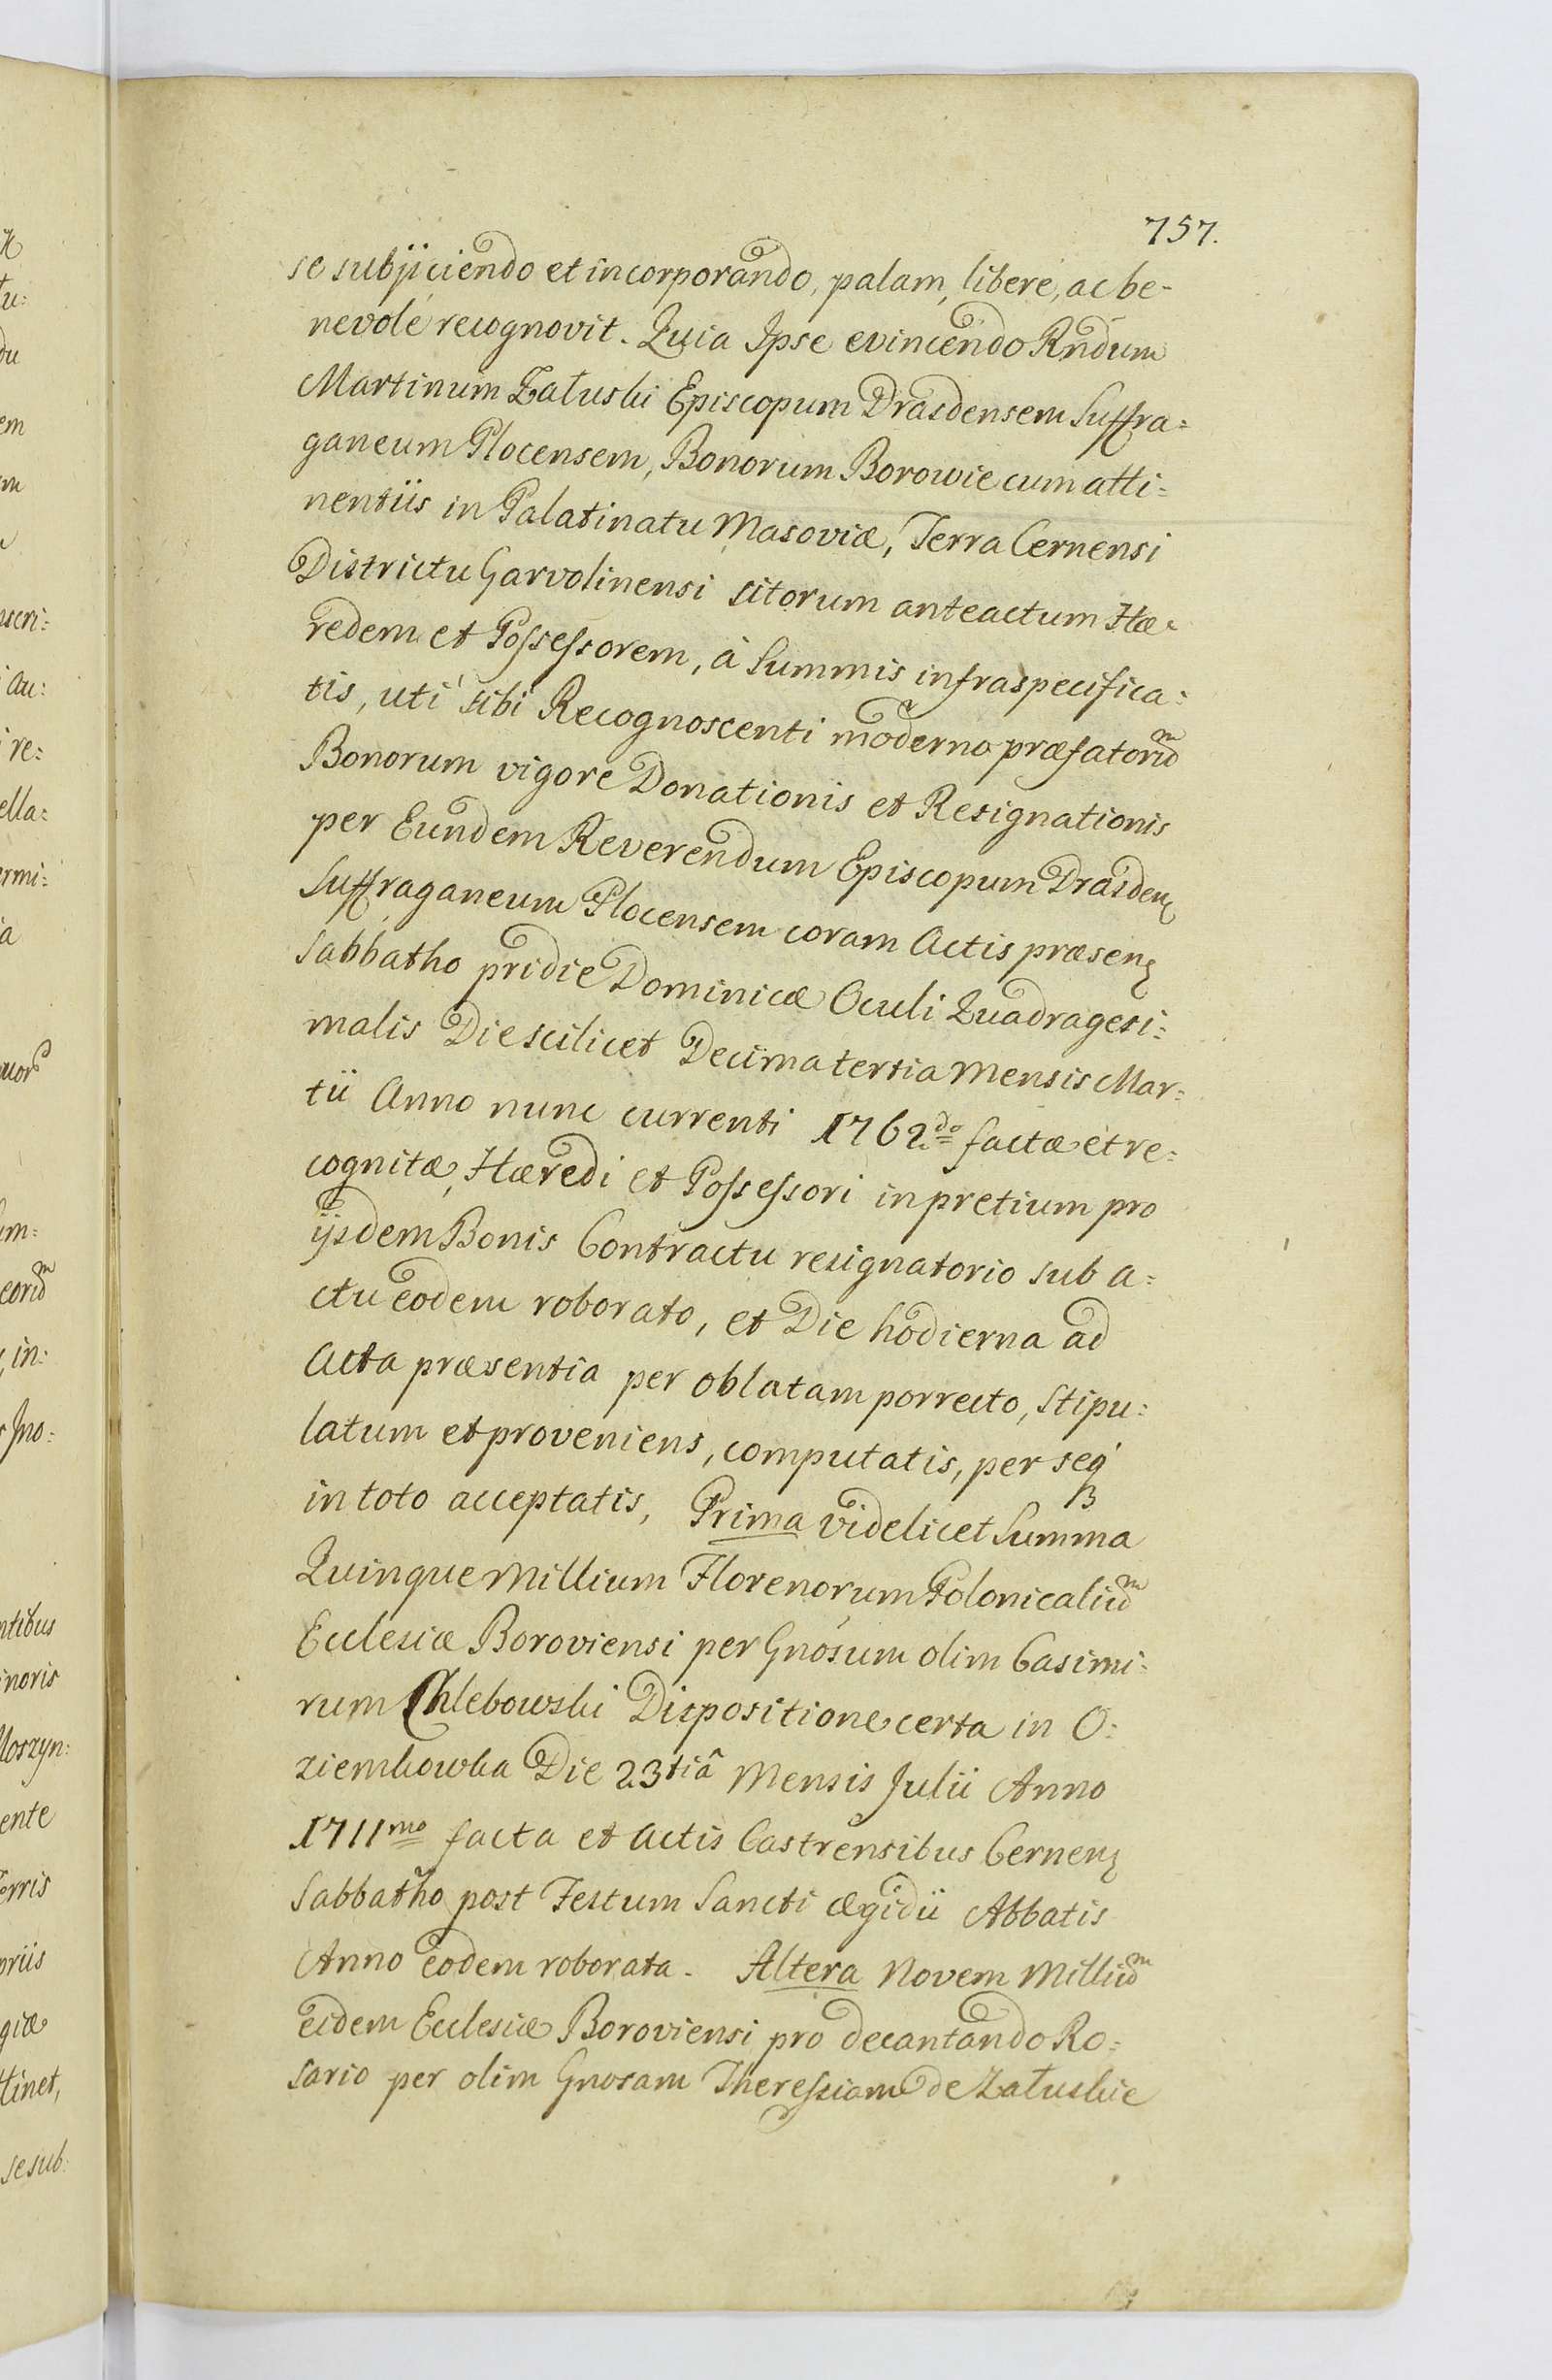 757.
se subjiciendo et incorporando, palam, liberè, ac be-
nevolè recognovit. Quia Ipse evincendo Rndum
Martinum Załuski Episcopum Drasdensem Suffra=
ganeum Plocensem, Bonorum Borowie cum atti=
nentiis in Palatinatu Masoviæ, Terra Cernensi
Districtu Garvolinensi sitorum anteactum Hæ=
redem et Possessorem, à Summis infraspecifica=
tis, uti sibi Recognoscenti moderno præfatorum
Bonorum vigore Donationis et Resignationis
per Eundem Reverendum Episcopum Drasden
Suffraganeum Plocensem coram Actis præsen
Sabbatho pridie Dominicæ Oculi Quadragesi=
malis Die scilicet Decima tertia Mensis Mar=
tii Anno nunc currenti 1762do factæ et re=
cognitæ, Hæredi et Possessori in pretium pro
ijsdem Bonis Contractu resignatorio sub a=
ctu eodem roborato, et Die hodierna ad
Acta præsentia per oblatam porrecto, stipu=
latum et proveniens, computatis, per seq
in toto acceptatis, Prima videlicet Summa
Quinque Millium Florenorum Polonicalium
Ecclesiæ Boroviensi per Gnosum olim Casimi=
rum Chlebowski Dispositione certa in O=
ziemkowka Die 23tiâ Mensis Julii Anno
1711mo facta et Actis Castrensibus Cernen
Sabbatho post Festum Sancti Ægidii Abbatis
Anno eodem roborata. Altera Novem Millium
eidem Ecclesiæ Boroviensi pro decantando Ro=
sario per olim Gnosam Theressiam de Załuskie